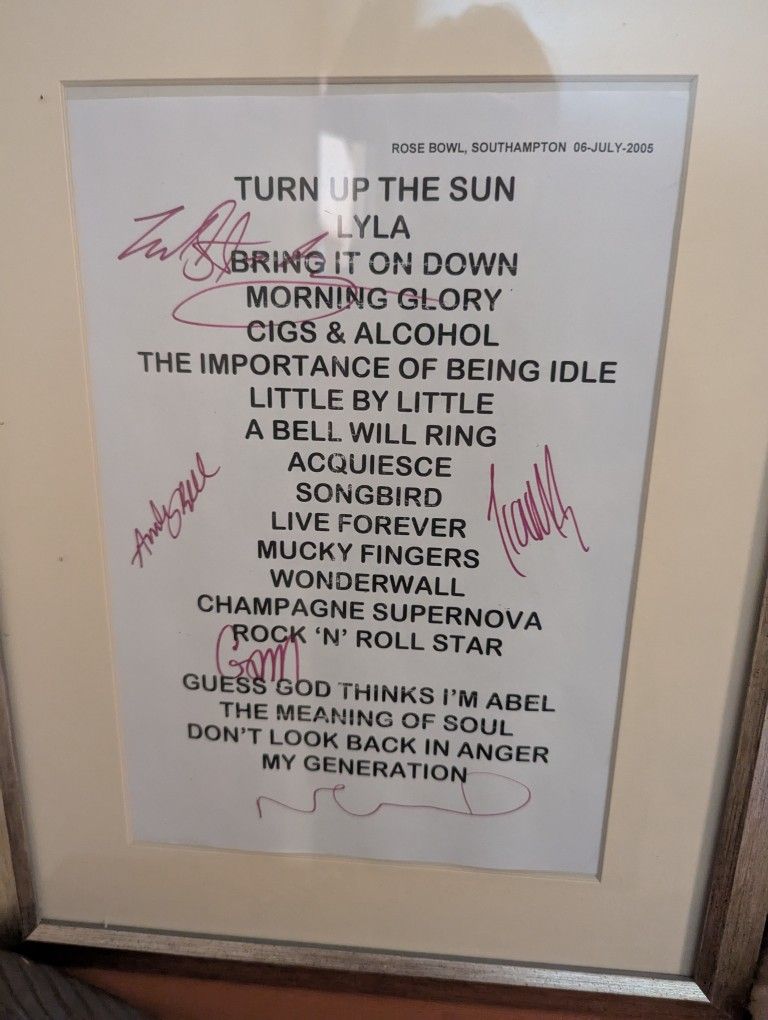 ROSE BOWL, SOUTHAMPTON 06-JULY-2005
TURN UP THE SUN
LYLA
BRING IT ON DOWN
MORNING GLORY
CIGS & ALCOHOL
THE IMPORTANCE OF BEING IDLE
LITTLE BY LITTLE
A BELL WILL RING
ACQUIESCE
SONGBIRD
LIVE FOREVER
MUCKY FINGERS
WONDERWALL
CHAMPAGNE SUPERNOVA
ROCK ‘N’ ROLL STAR
GUESS GOD THINKS I’M ABEL
THE MEANING OF SOUL
DON’T LOOK BACK IN ANGER
MY GENERATION
Andy Bell